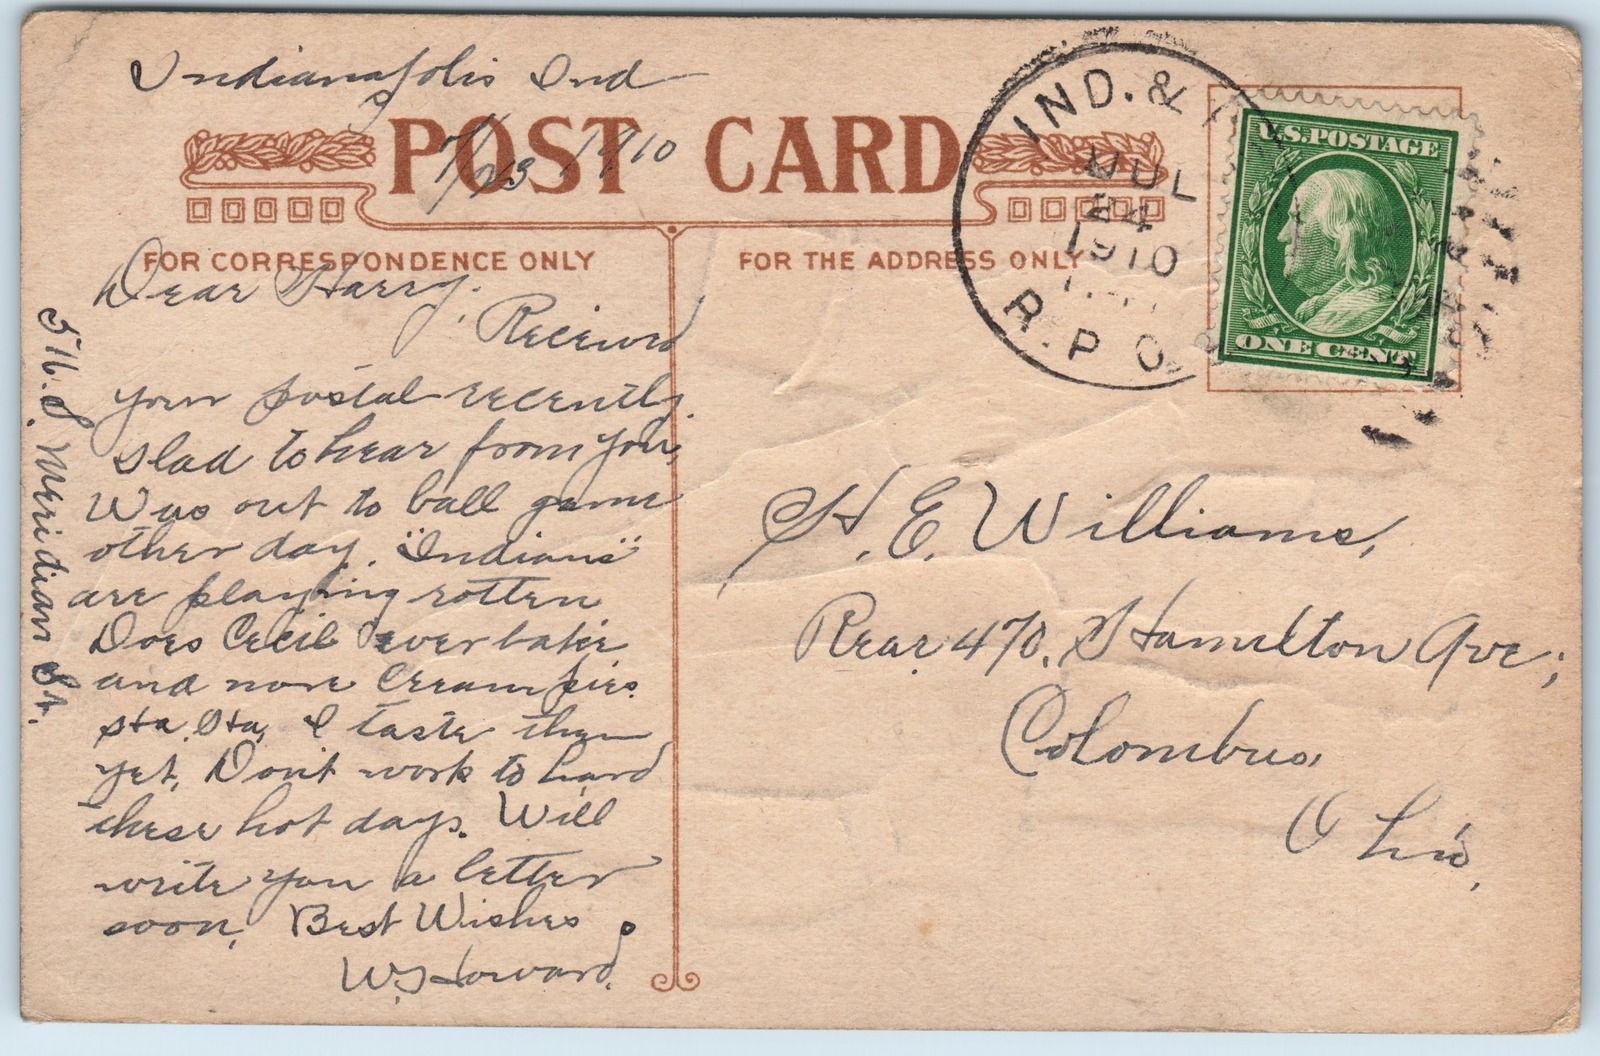 Indianapolis Ind
7/23 1910
POST CARD
FOR CORRESPONDENCE ONLY
FOR THE ADDRESS ONLY
Dear Harry.
Received
your postal recently.
Glad to hear from you,
Was out to ball game
other day. "Indians"
are playing rotten
Does Cecil ever bake
any more Cream pies.
Ha. Ha, I taste them
yet. Don't work to hard
these hot days. Will
write you a letter
soon, Best Wishes
W. Howard.
516. S. Meridian St.
IND. &
JUL
24
1910
R.P.O.
U.S. POSTAGE
ONE CENT
H. E. Williams,
Rear 470, Hamilton Ave;
Colombus,
Ohio,